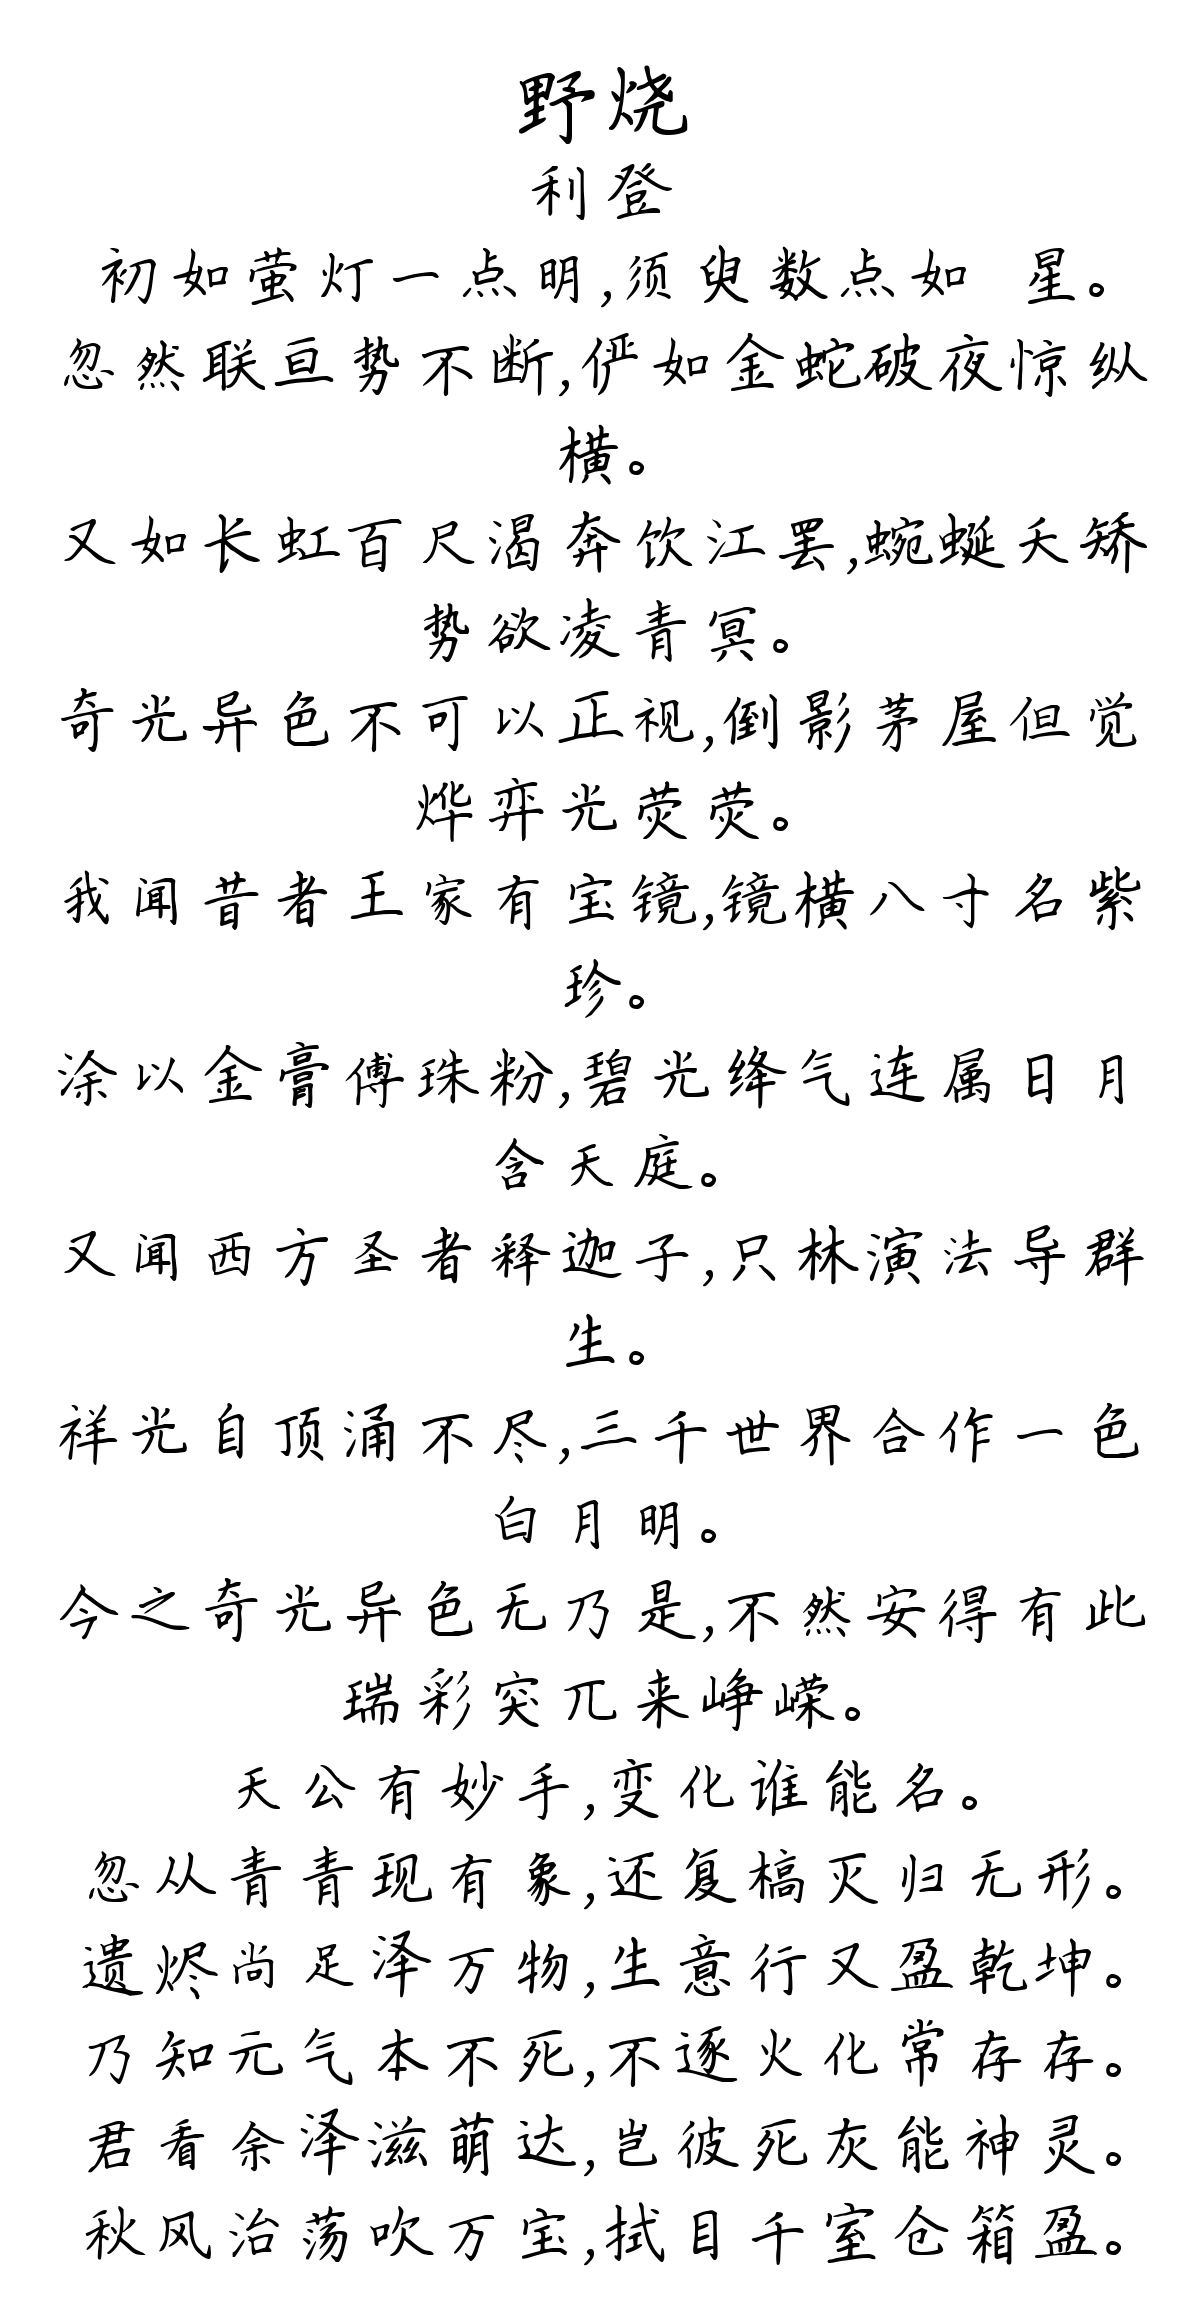 野烧
利登
初如萤灯一点明,须臾数点如 星。
忽然联亘势不断,俨如金蛇破夜惊纵
横。
又如长虹百尺渴奔饮江罢,蜿蜒夭矫
势欲凌青冥。
奇光异色不可以正视,倒影茅屋但觉
烨弈光荧荧。
我闻昔者王家有宝镜,镜横八寸名紫
珍。
涂以金膏傅珠粉,碧光绛气连属日月
含天庭。
又闻西方圣者释迦子,只林演法导群
生。
祥光自顶涌不尽,三千世界合作一色
白月明。
今之奇光异色无乃是,不然安得有此
瑞彩突兀来峥嵘。
天公有妙手,变化谁能名。
忽从青青现有象,还复槁灭归无形。
遗烬尚足泽万物,生意行又盈乾坤。
乃知元气本不死,不逐火化常存存。
君看余泽滋萌达,岂彼死灰能神灵。
秋风治荡吹万宝,拭目千室仓箱盈。